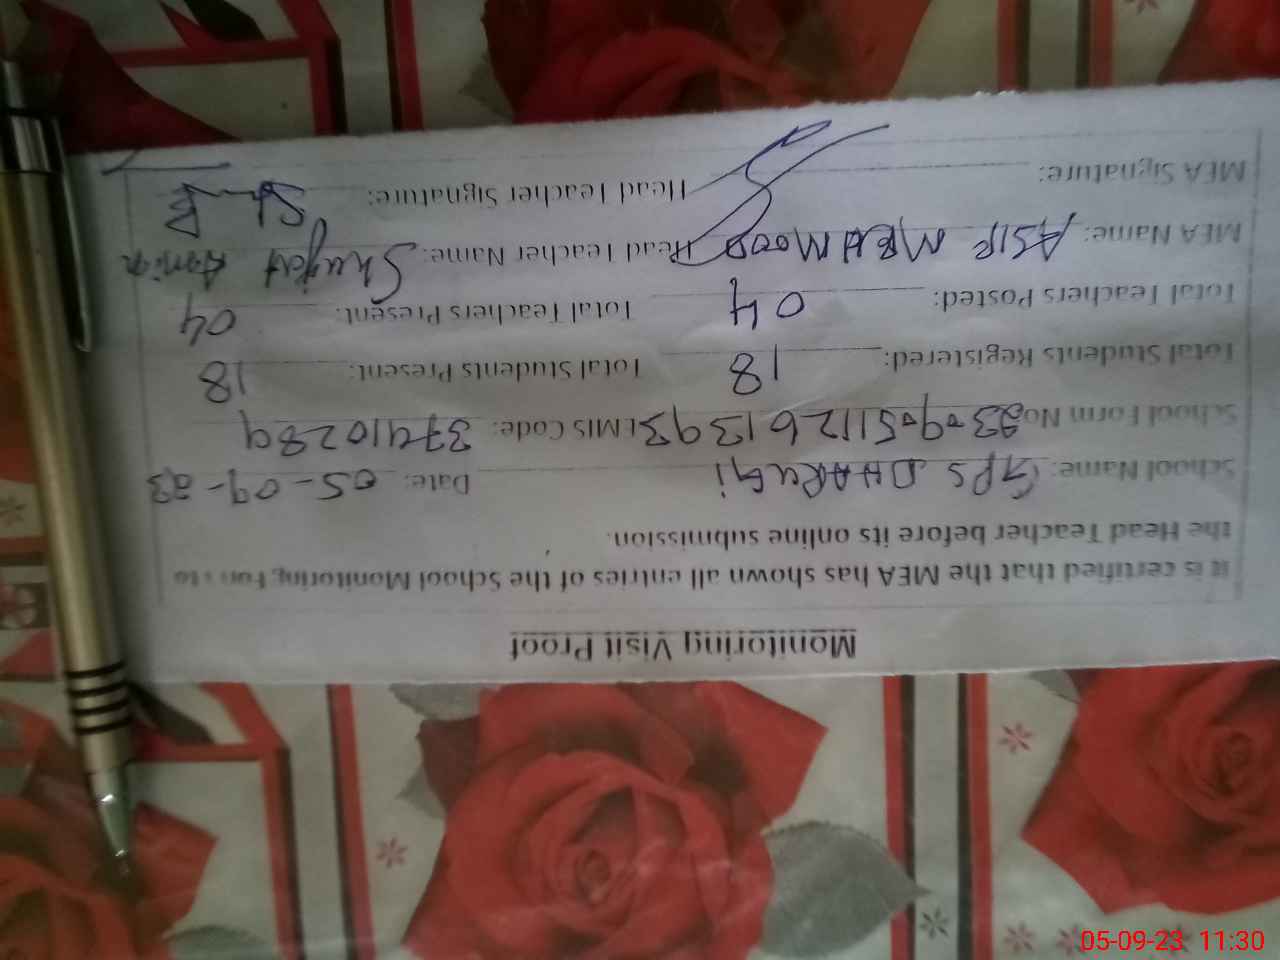 Monitoring Visit Proof
it is certified that the MEA has shown all entries of the School Monitoring Form to
the Head Teacher before its online submission.
School Name: GPS DHARUGI Date: 05-09-23
School Form No: EMIS Code: 37410289
Total Students Registered: 18 Total Students Present: 18
Total Teachers Posted: 04 Total Teachers Present: 04
MEA Name: ASIF MEHMOOD Head Teacher Name: Shujat Amin
MEA Signature: Head Teacher Signature:
05-09-23 11:30